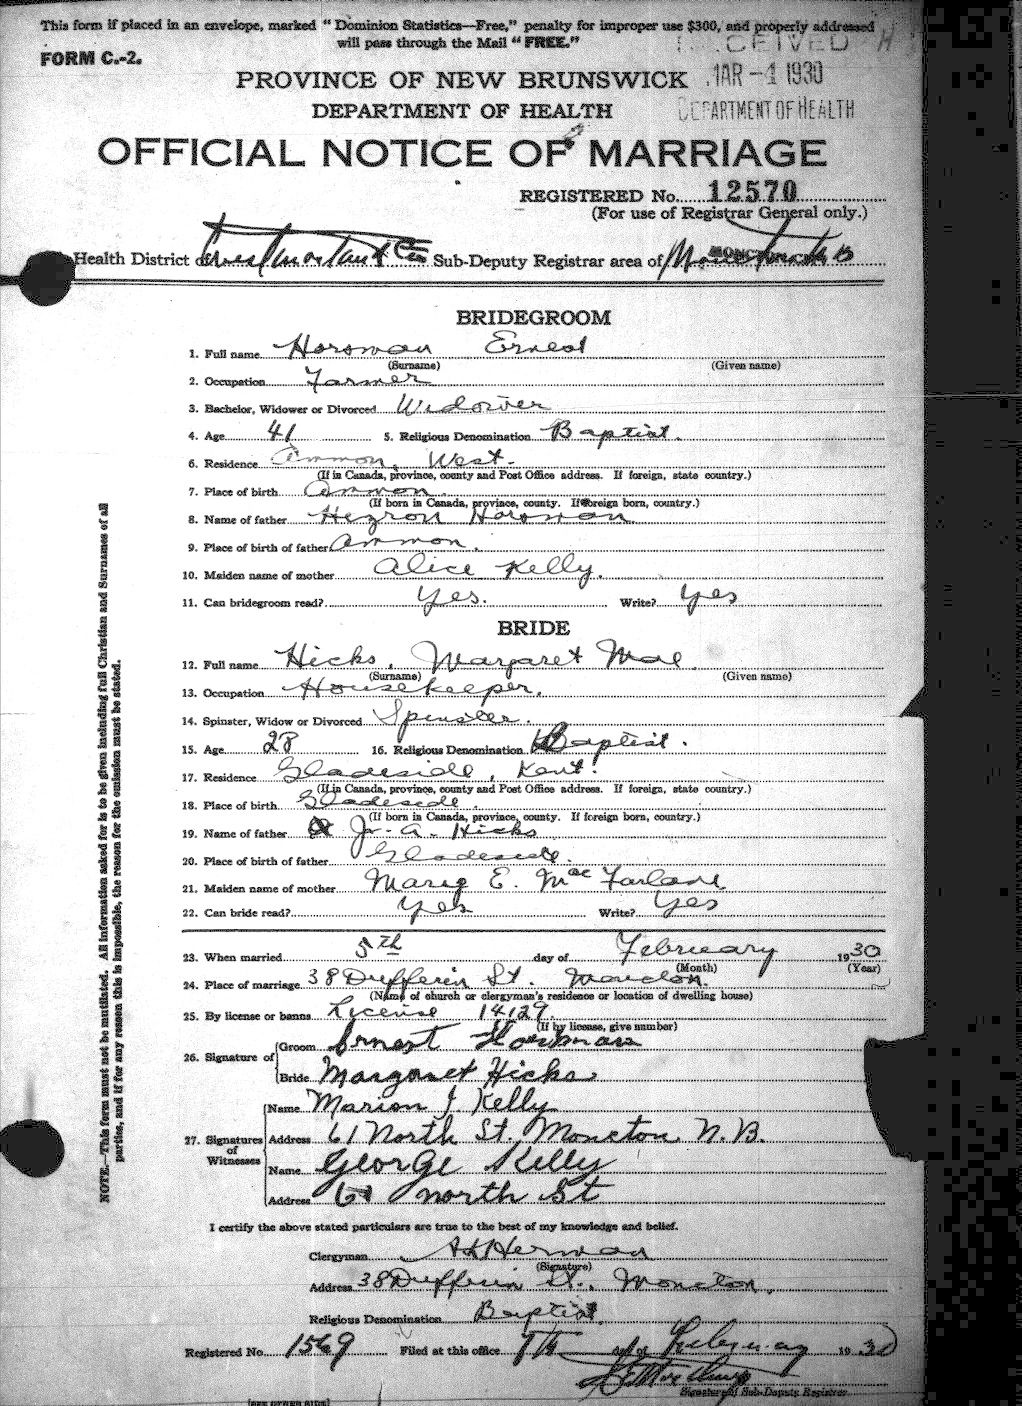 This form if placed in an envelope, marked "Dominion Statistics—Free," penalty for improper use $300, and properly addressed
will pass through the Mail "FREE."
FORM C.-2.
RECEIVED
MAR -4 1930
DEPARTMENT OF HEALTH
PROVINCE OF NEW BRUNSWICK
DEPARTMENT OF HEALTH
OFFICIAL NOTICE OF MARRIAGE
REGISTERED No. 12570
(For use of Registrar General only.)
Health District of Westmorland Co Sub-Deputy Registrar area of Moncton
BRIDEGROOM
1. Full name Horsman Ernest
(Surname) (Given name)
2. Occupation Farmer
3. Bachelor, Widower or Divorced Widower
4. Age 41 5. Religious Denomination Baptist.
6. Residence Ammon, West.
(If in Canada, province, county and Post Office address. If foreign, state country.)
7. Place of birth Ammon.
(If born in Canada, province, county. If foreign born, country.)
8. Name of father Hezron Horsman
9. Place of birth of father Ammon.
10. Maiden name of mother Alice Kelly.
11. Can bridegroom read? Yes. Write? Yes
BRIDE
12. Full name Hicks, Margaret Mae
(Surname) (Given name)
13. Occupation Housekeeper.
14. Spinster, Widow or Divorced Spinster.
15. Age 28 16. Religious Denomination Baptist.
17. Residence Gladeside, Kent.
(If in Canada, province, county and Post Office address. If foreign, state country.)
18. Place of birth Gladeside.
(If born in Canada, province, county. If foreign born, country.)
19. Name of father A. Hicks
20. Place of birth of father Gladeside.
21. Maiden name of mother E. MacFarlane
22. Can bride read? Yes Write? Yes
23. When married 5th day of February 1930
(Month) (Year)
24. Place of marriage 38 Dufferin St. Moncton.
(Name of church or clergyman's residence or location of dwelling house)
25. By license or banns License 14129
(If by license, give number)
26. Signature of Groom Ernest Horsman
Bride Margaret Hicks
27. Signatures of Witnesses Name Marion J. Kelly
Address 61 North St. Moncton N.B.
Name George Kelly
Address 61 North St
I certify the above stated particulars are true to the best of my knowledge and belief.
Clergyman Herman
(Signature)
Address 38 Dufferin St., Moncton.
Religious Denomination Baptist.
Registered No. 1569 Filed at this office 7th day of February 1930
Signature of Sub-Deputy Registrar
NOTE.—This form must not be mutilated. All information asked for is to be given including full Christian and Surnames of all
parties, and if for any reason this is impossible, the reason for the omission must be stated.